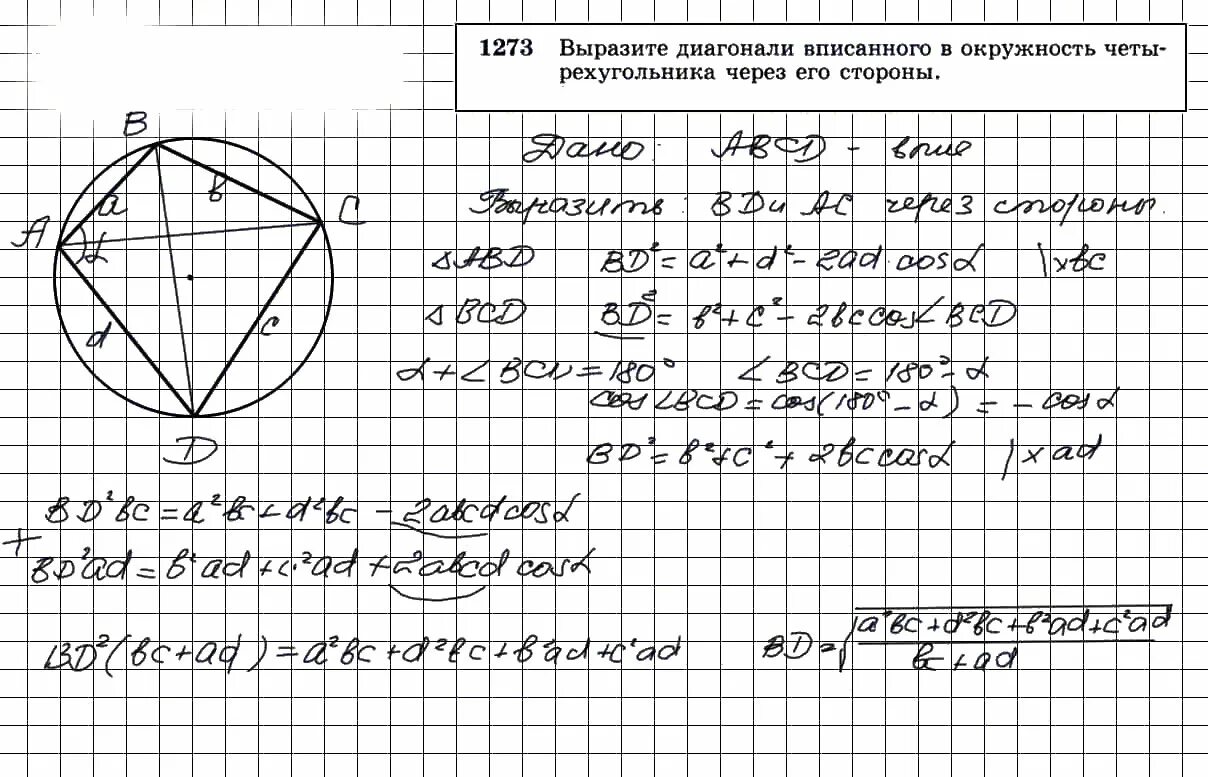 1273 Выразите диагонали вписанного в окружность четы-
рехугольника через его стороны.
B
в
a
C
A
α
c
d
D
Дано: ABCD - впис
Выразить: BD и AC через стороны.
△ABD BD² = a² + d² - 2ad·cosα |×вc
△BCD BD² = в² + c² - 2вc cos∠BCD
α + ∠BCD = 180° ∠BCD = 180° - α
cos∠BCD = cos(180° - α) = - cosα
BD² = в² + c² + 2вc cosα |× ad
+
BD²вc = a²вc + d²вc - 2aвcd cosα
BD²ad = в²ad + c²ad + 2aвcd cosα
BD²(вc + ad) = a²вc + d²вc + в²ad + c²ad
BD = √(a²вc + d²вc + в²ad + c²ad / вc + ad)